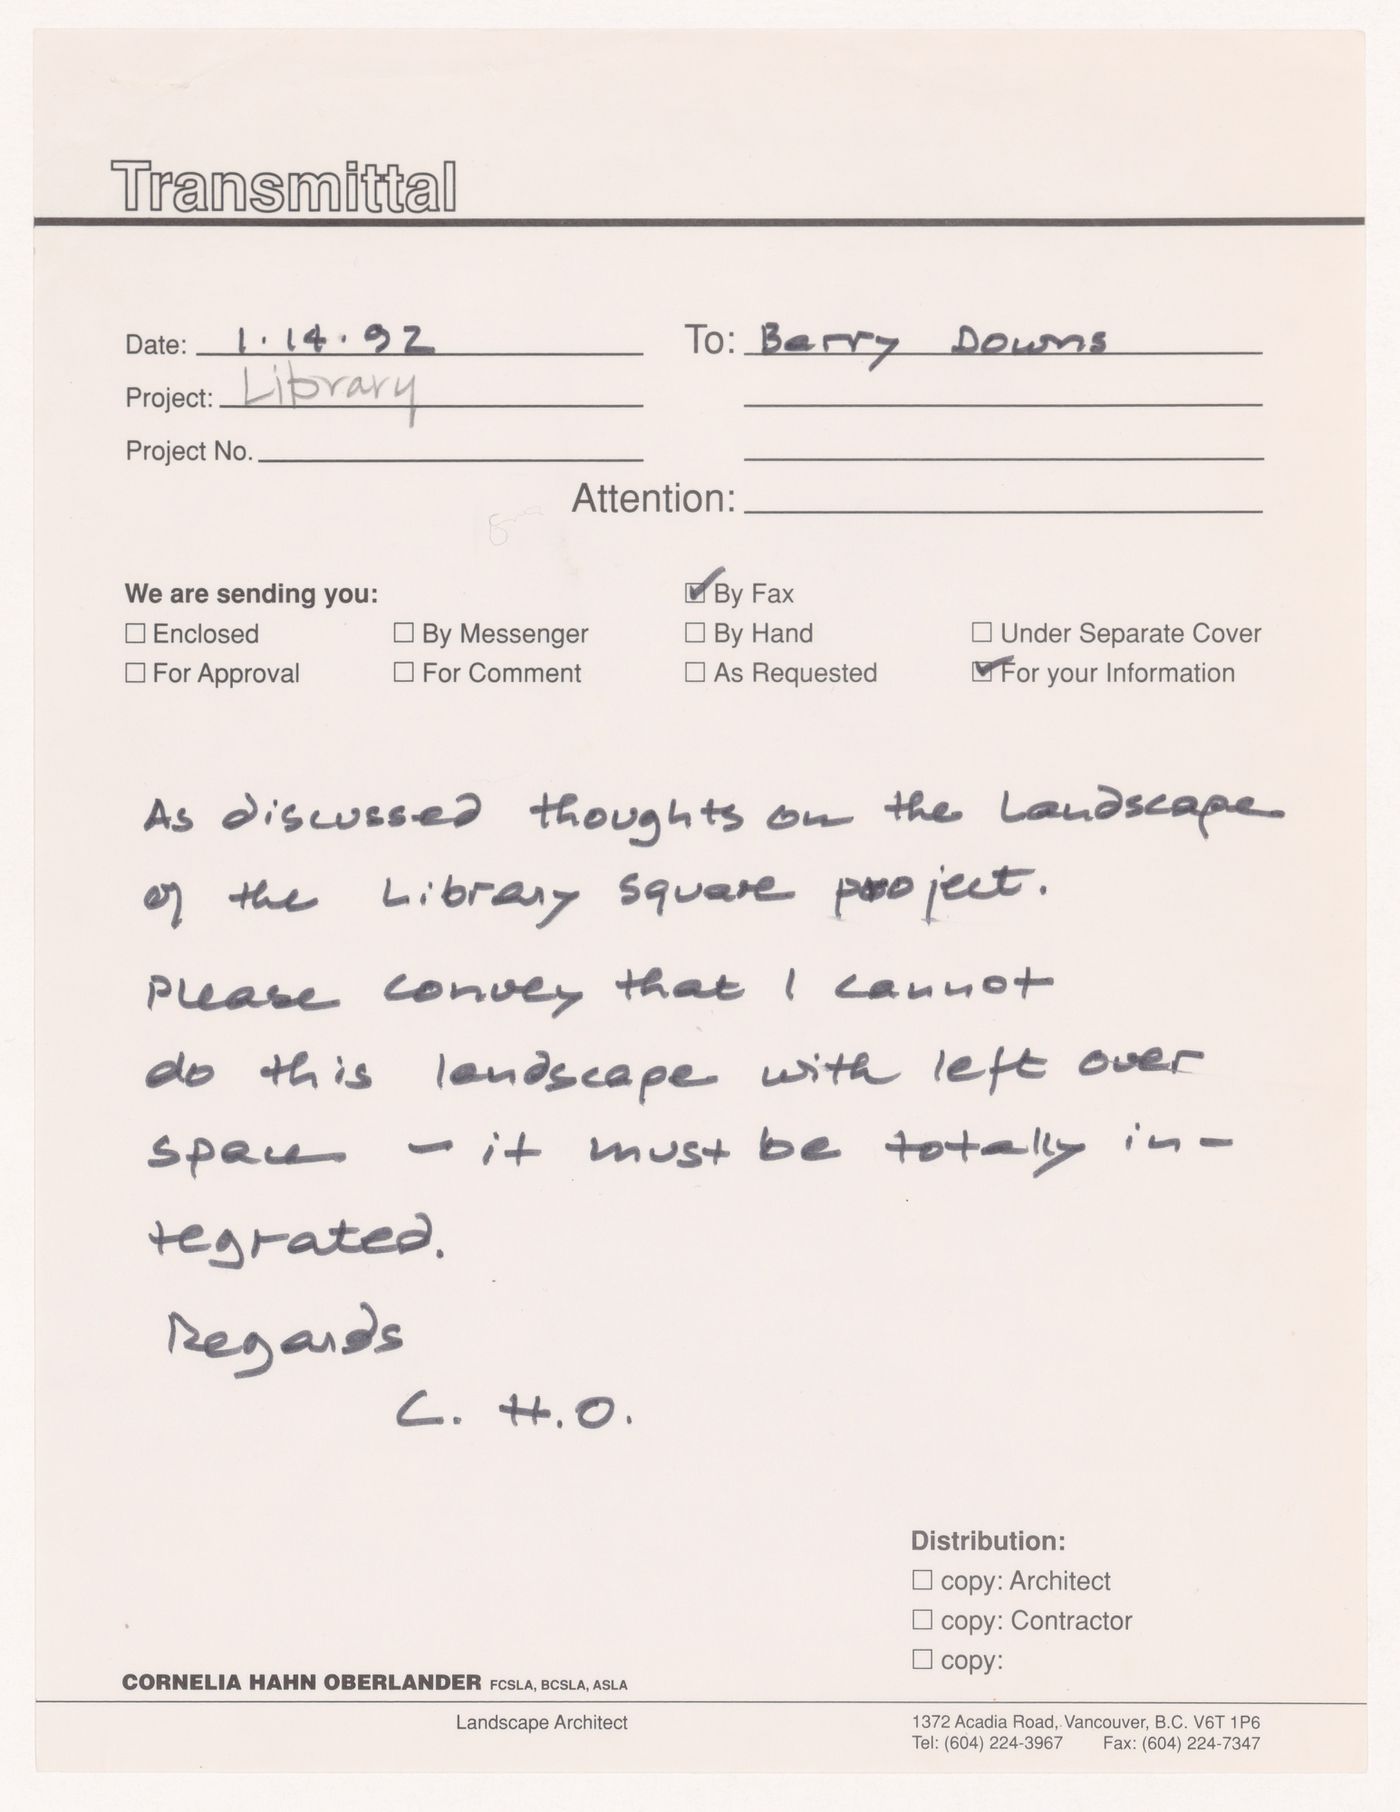 Transmittal
Date: 1.14.92
To: Barry Downs
Project: Library
Project No.
Attention:
We are sending you:
☑ By Fax
☐ Enclosed ☐ By Messenger ☐ By Hand ☐ Under Separate Cover
☐ For Approval ☐ For Comment ☐ As Requested ☑ For your Information
As discussed thoughts on the Landscape
of the Library Square project.
Please convey that I cannot
do this landscape with left over
space - it must be totally in-
tegrated.
Regards
C. H.O.
Distribution:
☐ copy: Architect
☐ copy: Contractor
☐ copy:
CORNELIA HAHN OBERLANDER FCSLA, BCSLA, ASLA
Landscape Architect
1372 Acadia Road, Vancouver, B.C. V6T 1P6
Tel: (604) 224-3967 Fax: (604) 224-7347